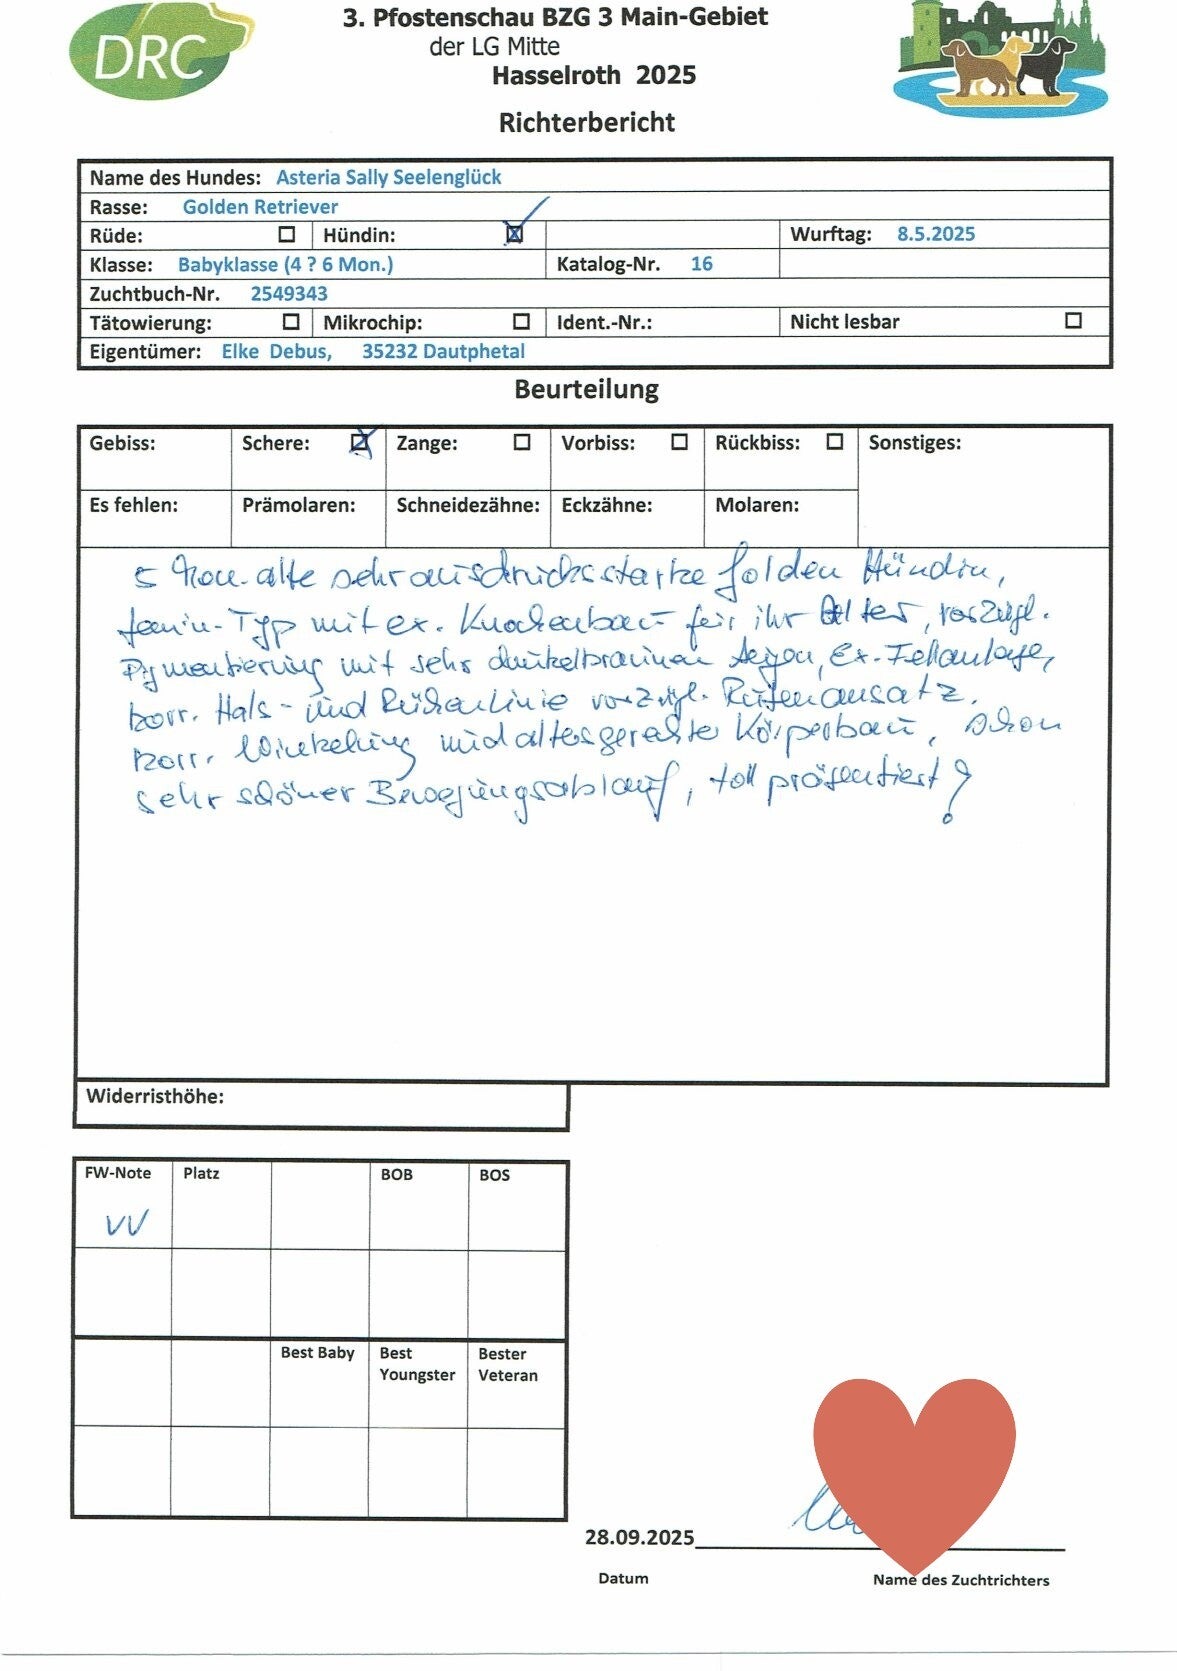 DRC
3. Pfostenschau BZG 3 Main-Gebiet
der LG Mitte
Hasselroth 2025
Richterbericht
Name des Hundes: Asteria Sally Seelenglück
Rasse: Golden Retriever
Rüde: Hündin: Wurftag: 8.5.2025
Klasse: Babyklasse (4 ? 6 Mon.) Katalog-Nr. 16
Zuchtbuch-Nr. 2549343
Tätowierung: Mikrochip: Ident.-Nr.: Nicht lesbar
Eigentümer: Elke Debus, 35232 Dautphetal
Beurteilung
Gebiss: Schere: Zange: Vorbiss: Rückbiss: Sonstiges:
Es fehlen: Prämolaren: Schneidezähne: Eckzähne: Molaren:
5 Mon. alte sehr ausdrucksstarke Golden Hündin,
femin. Typ mit ex. Knochenbau für ihr Alter, vorzügl.
Pigmentierung mit sehr dunkelbraunen Augen, ex. Fellanlage,
korr. Hals- und Rückenlinie vorzügl. Rutenansatz.
korr. Winkelung und altersgerechter Körperbau, schon
sehr schöner Bewegungsablauf, toll präsentiert!
Widerristhöhe:
FW-Note Platz BOB BOS
VV
Best Baby Best Youngster Bester Veteran
28.09.2025
Datum Name des Zuchtrichters